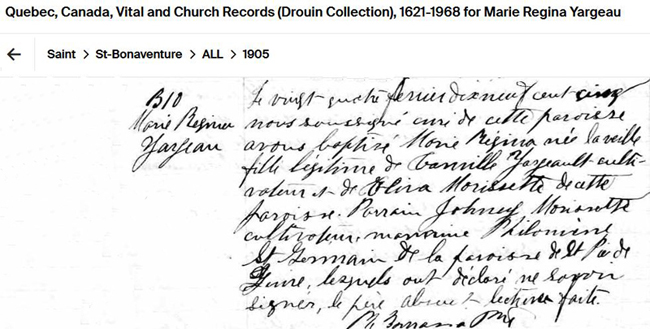 Quebec, Canada, Vital and Church Records (Drouin Collection), 1621-1968 for Marie Regina Yargeau
Saint > St-Bonaventure > ALL > 1905
B10
Marie Regina
Yargeau
Le vingt quatre fevrier dix neuf cent cinq
nous soussigné curé de cette paroisse
avons baptisé Marie Regina née la veille
fille légitime de Camille Yargeault culti-
vateur et de Oliva Morissette de cette
paroisse. Parrain Johney Morissette
cultivateur, marraine Philomine
St Germain de la paroisse de St Pie de
Guire, lesquels ont déclaré ne savoir
signer, le père absent lecture faite.
Ptre